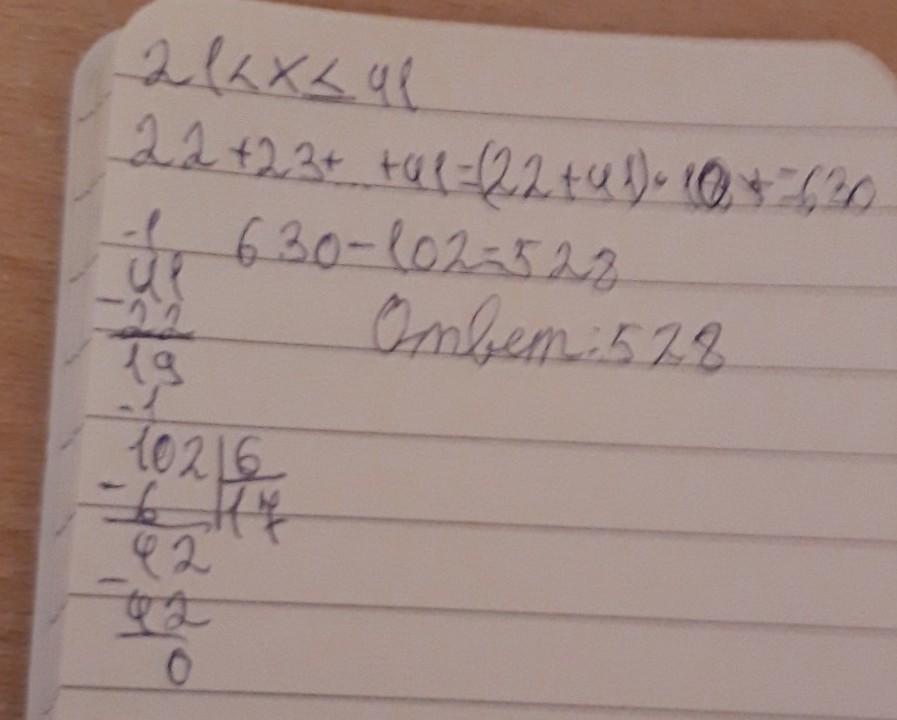 21<x≤41
22+23+...+41=(22+41)·10=630
-1 630-102=528
41
-22
19
Ответ:528
-1
102|6
-6 17
42
-42
0